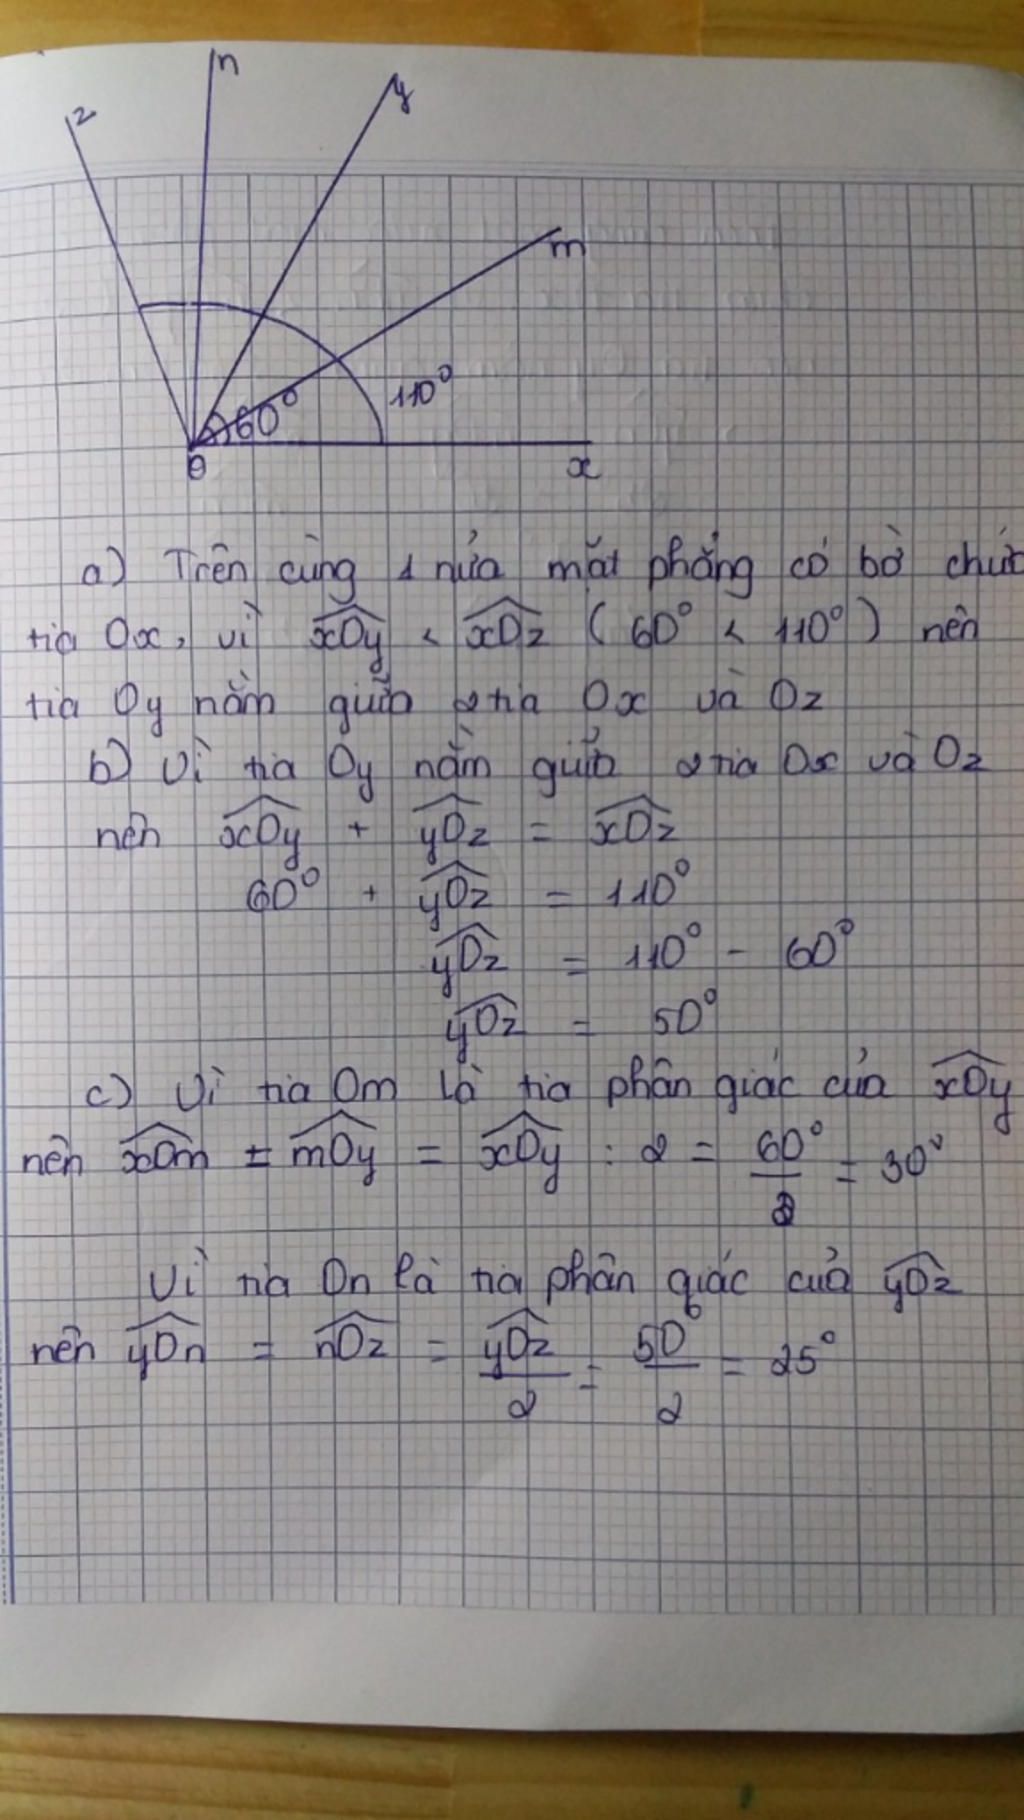 z n y
m
60° 110°
O x
a) Trên cùng 1 nửa mặt phẳng có bờ chứa
tia Ox, vì xOy < xOz ( 60° < 110° ) nên
tia Oy nằm giữa 2 tia Ox và Oz
b) Vì tia Oy nằm giữa 2 tia Ox và Oz
nên xOy + yOz = xOz
60° + yOz = 110°
yOz = 110° - 60°
yOz = 50°
c) Vì tia Om là tia phân giác của xOy
nên xOm = mOy = xOy : 2 = 60°/2 = 30°
Vì tia On là tia phân giác của yOz
nên yOn = nOz = yOz/2 = 50°/2 = 25°